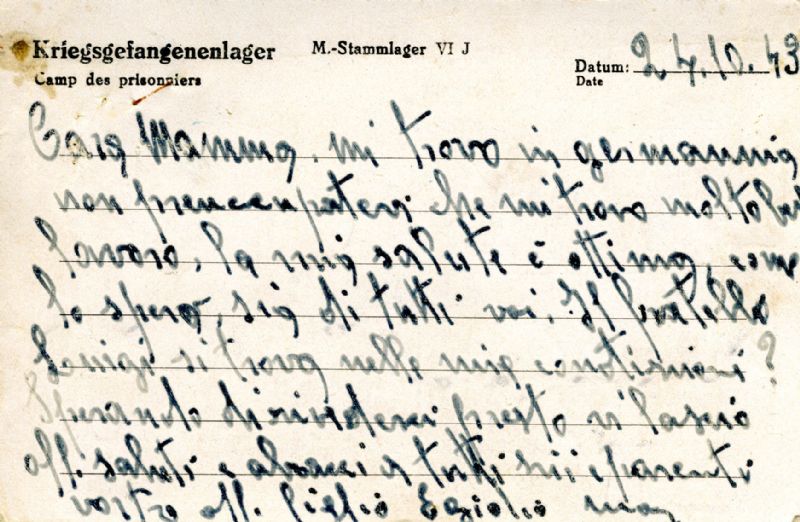 Kriegsgefangenenlager M.-Stammlager VI J
Camp des prisonniers
Datum: 24.10.43
Date
Cara Mamma. mi trovo in germannia
non preuccupatevi che mi trovo molto be
lavoro, la mia salute è ottima, come
lo spero, sia di tutti voi. Il fratello
Luuigi si trova nelle mie condizioni?
Sperando di rivederci presto vi lascio
aff. saluti e abracci a tutti zii e parenti
vostro aff. figlio